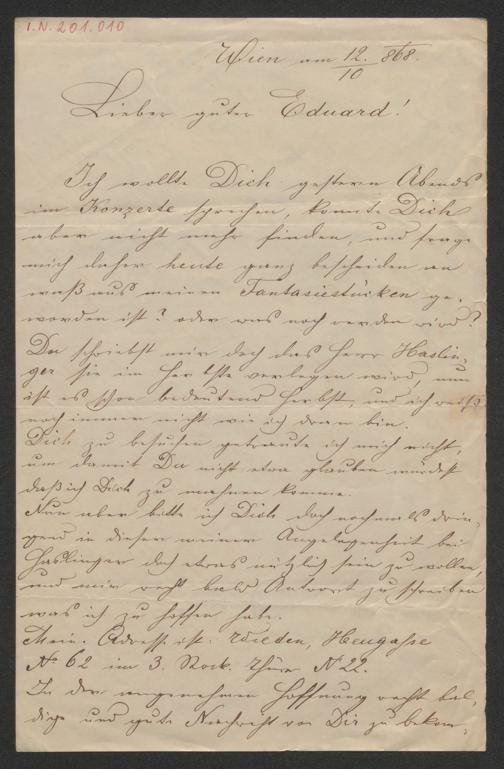 I.N. 201.010
Wien am 12./10 868.
Lieber guter Eduard!
Ich wollte Dich gestern Abends
im Konzerte sprechen, konnte Dich
aber nicht mehr finden, und frage
mich daher heute ganz bescheiden an
was aus meinen Fantasiestücken ge-
worden ist? oder was noch werden wird?
Du schriebst mir doch das Herr Haslin-
ger sie im Herbste verlegen wird, nun
ist es schon bedeutend Herbst, und ich weiß
noch immer nicht wie ich dran bin.
Dich zu besuchen getraute ich mich nicht,
um damit Du nicht etwa glauben würdest
daß ich Dich zu mahnen komme.
Nun aber bitte ich Dich doch nochmals drin-
gend in dieser meiner Angelegenheit bei
Haslinger doch etwas nützlich sein zu wollen,
und mir recht bald Antwort zu schreiben
was ich zu hoffen habe.
Mein Adresse ist: Wieden, Heugasse
No 62 im 3. Stock. Thür No 22.
In der angenehmen Hoffnung recht bal-
dige und gute Nachricht von Dir zu bekom-